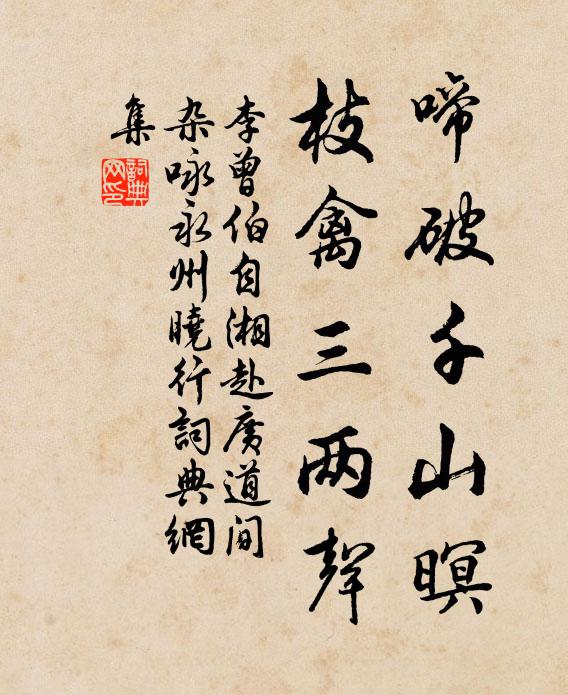 啼破千山暝
枝禽三两聲
李曾伯自湘赴廣道间
杂咏永州曉行詞典網
集
詞典
网印